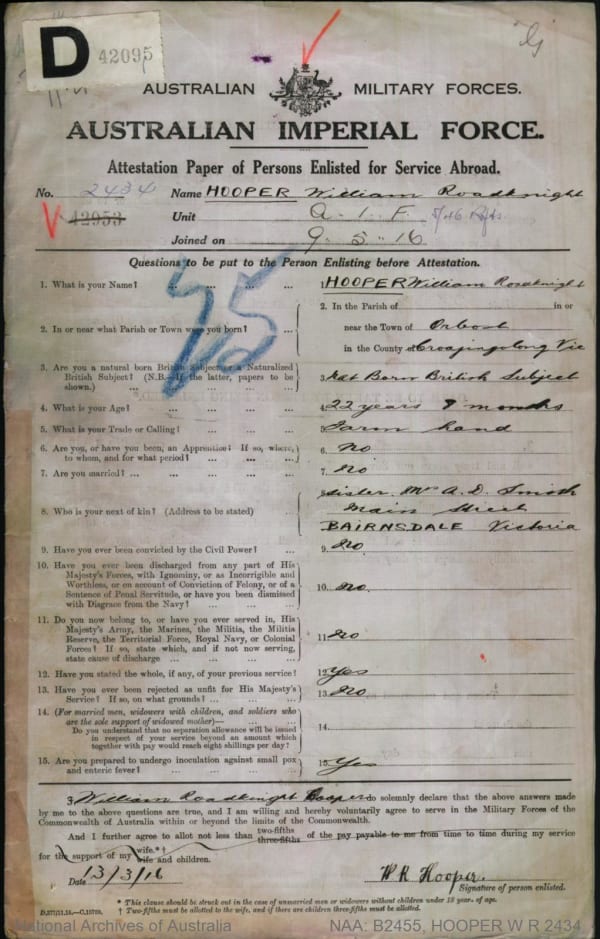 D 42095
AUSTRALIAN MILITARY FORCES.
AUSTRALIAN IMPERIAL FORCE.
Attestation Paper of Persons Enlisted for Service Abroad.
No. 2434 Name HOOPER William Roadknight
42953 Unit A. I. F.
Joined on 9. 5. 16
Questions to be put to the Person Enlisting before Attestation.
1. What is your Name? ... 1. HOOPER William Roadknight
2. In or near what Parish or Town were you born? ... 2. In the Parish of in or
near the Town of Orbost
in the County of Croajingolong Vic
3. Are you a natural born British Subject or a Naturalized 3. Nat Born British Subject
British Subject? (N.B.—If the latter, papers to be
shown.) ...
4. What is your Age? ... 4. 22 years 9 months
5. What is your Trade or Calling? ... 5. Farm hand
6. Are you, or have you been, an Apprentice? If so, where, 6. No
to whom, and for what period? ...
7. Are you married? ... 7. No
8. Who is your next of kin? (Address to be stated) ... 8. Sister. Mrs A. D. Smith
Main Street
BAIRNSDALE Victoria
9. Have you ever been convicted by the Civil Power? ... 9. No
10. Have you ever been discharged from any part of His
Majesty's Forces, with Ignominy, or as Incorrigible and
Worthless, or on account of Conviction of Felony, or of a
Sentence of Penal Servitude, or have you been dismissed 10. No.
with Disgrace from the Navy? ...
11. Do you now belong to, or have you ever served in, His
Majesty's Army, the Marines, the Militia, the Militia
Reserve, the Territorial Force, Royal Navy, or Colonial 11. No
Forces? If so, state which, and if not now serving,
state cause of discharge ...
12. Have you stated the whole, if any, of your previous service? 12. Yes
13. Have you ever been rejected as unfit for His Majesty's 13. No
Service? If so, on what grounds? ...
14. (For married men, widowers with children, and soldiers who
are the sole support of widowed mother)—
Do you understand that no separation allowance will be issued 14.
in respect of your service beyond an amount which
together with pay would reach eight shillings per day?
15. Are you prepared to undergo inoculation against small pox 15. Yes
and enteric fever? ...
I, William Roadknight Hooper do solemnly declare that the above answers made
by me to the above questions are true, and I am willing and hereby voluntarily agree to serve in the Military Forces of the
Commonwealth of Australia within or beyond the limits of the Commonwealth.
And I further agree to allot not less than two-fifths three-fifths of the pay payable to me from time to time during my service
for the support of my wife.*† wife and children.
Date 13/3/16 W R Hooper.
Signature of person enlisted.
* This clause should be struck out in the case of unmarried men or widowers without children under 18 year. of age.
† Two-fifths must be allotted to the wife, and if there are children three-fifths must be allotted.
National Archives of Australia NAA: B2455, HOOPER W R 2434